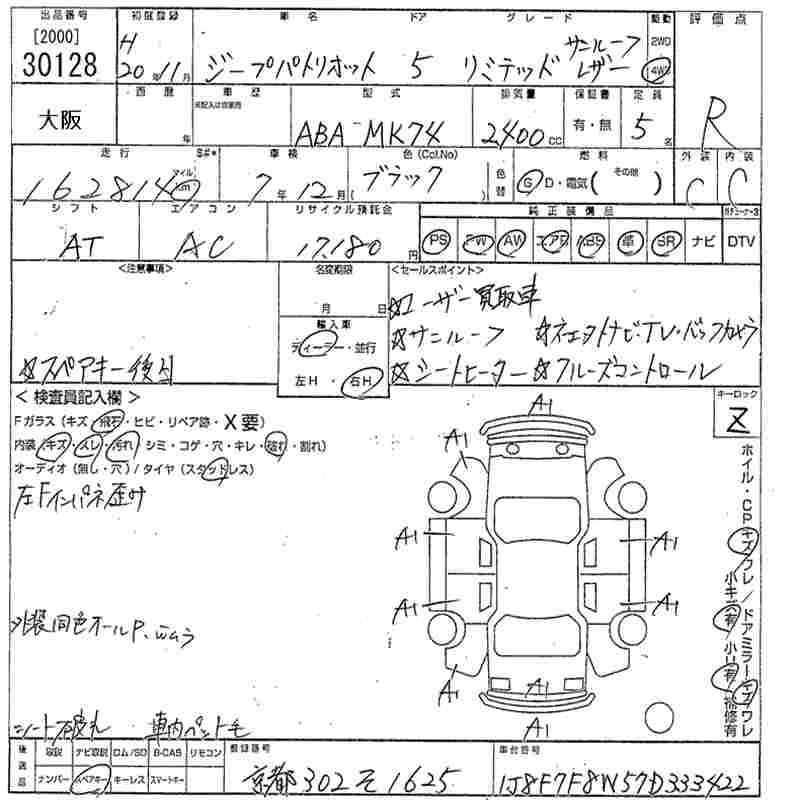 出品番号 初度登録 車名 ドア グレード 駆動 評価点
[2000] H サンルーフ 2WD
30128 20年11月 ジープパトリオット 5 リミテッド レザー 4WD R
西暦 車歴 型式 排気量 保証書 定員
大阪 年 未記入は自家用 ABA-MK74 2,400cc 有・無 5名
走行 車検 色(Col,No) 燃料 外装 内装
162814 マイル km 7年12月 ブラック 色替 G D・電気( その他 ) C C
シフト エアコン リサイクル預託金 純正装備品
AT AC 17,180円 PS PW AW エアB ABS 革 SR ナビ DTV
<注意事項> 名変期限 <セールスポイント>
月 日 ☆ユーザー買取車
輸入車 ☆サンルーフ ☆社外ナビ・TV・バックカメラ
ディーラー・並行
☆スペアキー後日 左H・右H ☆シートヒーター ☆クルーズコントロール
<検査員記入欄> キーロック
Fガラス(キズ・飛石・ヒビ・リペア跡・X要) Z
内装(キズ・スレ・汚れ・シミ・コゲ・穴・キレ・破れ・割れ)
オーディオ(無し・穴)/タイヤ(スタッドレス)
左Fインパネ歪み
外装同色オールP.wムラ
シート破れ 車内ペット毛
A1
A1
A1 A1
A1 A1
A1 A1
A1
ホイル・CPキズワレ/ドアミラーキズワレ
小キズ有/小凹有/補修有
後送品 取説 ナビ取説 ロム/SD B-CAS リモコン 登録番号 車台番号
ナンバー スペアキー キーレス スマートキー 京都302そ1625 1J8F7F8W57D333422